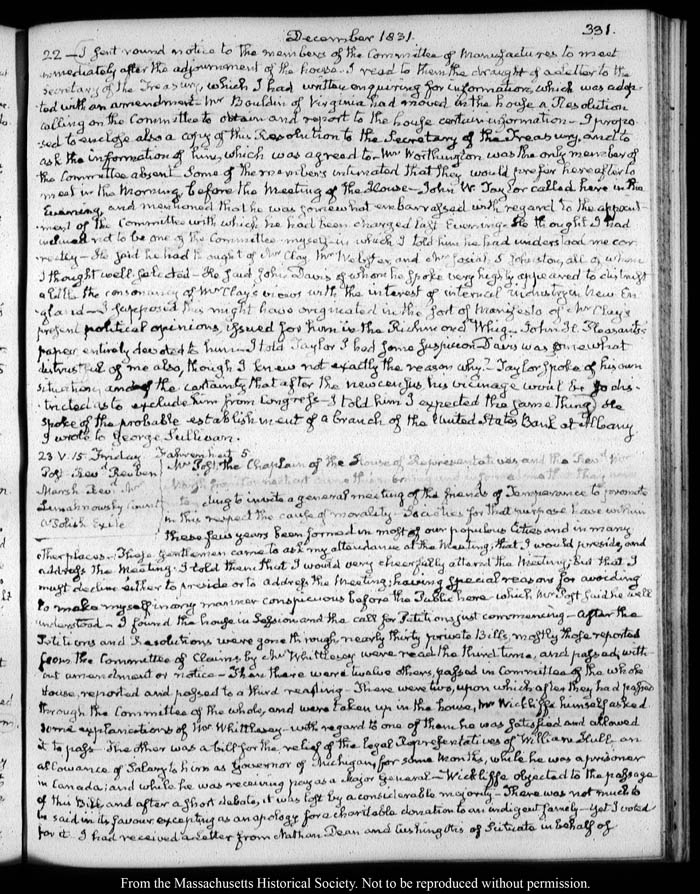 December 1831. 331.
22 — I sent round notice to the members of the Committee of Manufactures to meet
immediately after the adjournment of the house. I read to them the draught of a Letter to the
Secretary of the Treasury, which I had written enquiring for information, which was adop-
ted with an amendment. Mr Bouldin of Virginia had moved in the house a Resolution
calling on the Committee to obtain and report to the house certain information — I propo-
sed to enclose also a copy of this Resolution to the Secretary of the Treasury, and to
ask the information of him, which was agreed to — Mr Worthington was the only member of
the Committee absent. Some of the members intimated that they would prefer hereafter to
meet in the Morning before the Meeting of the House — John W. Taylor called here in the
Evening, and mentioned that he was somewhat embarrassed with regard to the appoint-
ment of the Committee with which he had been charged last Evening — He thought I had
inclined not to be one of the Committee myself — in which I told him he had understood me cor-
rectly — He said he had thought of Mr Clay, Mr Webster, and Mr Josiah S Johnston, all of whom
I thought well selected — He said John Davis of whom he spoke very highly appeared to distrust
a little the consonancy of Mr Clay's views with the interest of internal industry in New En-
gland — I supposed this might have originated in the sort of Manifesto of Mr Clay's
present political opinions, issued for him in the Richmond Whig — John H. Pleasants's
paper entirely devoted to him — I told Taylor I had some suspicion Davis was somewhat
distrustful of me also, though I knew not exactly the reason why — Taylor spoke of his own
situation and of the certainty that after the new census his vicinage would be so dis-
tricted as to exclude him from Congress — I told him I expected the same thing. He
spoke of the probable establishment of a branch of the United States Bank at Albany
I wrote to George Sullivan.
23 V. 15 Friday Fahrenheit 5
Post Revd Reuben
Marsh Revd Mr
Lemanowsky Count
a Polish Exile
Mr Post, the Chaplain of the House of Representatives and the Revd Mr
ding to invite a general meeting of the friends of Temperance to promote
in this respect the cause of morality. Societies for that purpose have within
these few years been formed in most of our populous Cities and in many
other places. These Gentlemen came to ask my attendance at the Meeting; that I would preside, and
address the Meeting. I told them that I would very cheerfully attend the Meeting; but that I
must decline either to preside or to address the Meeting; having special reasons for avoiding
to make myself in any manner conspicuous before the Public here — which Mr Post said he well
understood — I found the house in Session and the call for Petitions just commencing — After the
Petitions and Resolutions were gone through, nearly thirty private Bills, mostly those reported
from the Committee of Claims by Mr Whittlesey were read the third time, and passed, with-
out amendment or notice — Then there were twelve others, passed in Committee of the whole
House, reported and passed to a third reading — There were two, upon which after they had passed
through the Committee of the whole, and were taken up in the house, Mr Wickliffe himself asked
some explanations of Mr Whittlesey — with regard to one of them he was satisfied and allowed
it to pass — The other was a bill for the relief of the legal Representatives of William Hull — an
allowance of Salary to him as Governor of Michigan, for some Months, while he was a prisoner
in Canada; and while he was receiving pay as a Major General — Wickliffe objected to the passage
of this Bill, and after a short debate, it was lost by a considerable majority — There was not much to
be said in its favour excepting as an apology for a charitable donation to an indigent family — yet I voted
for it. I had received a Letter from Nathan Dean and Cushing Otis of Scituate in behalf of
From the Massachusetts Historical Society. Not to be reproduced without permission.